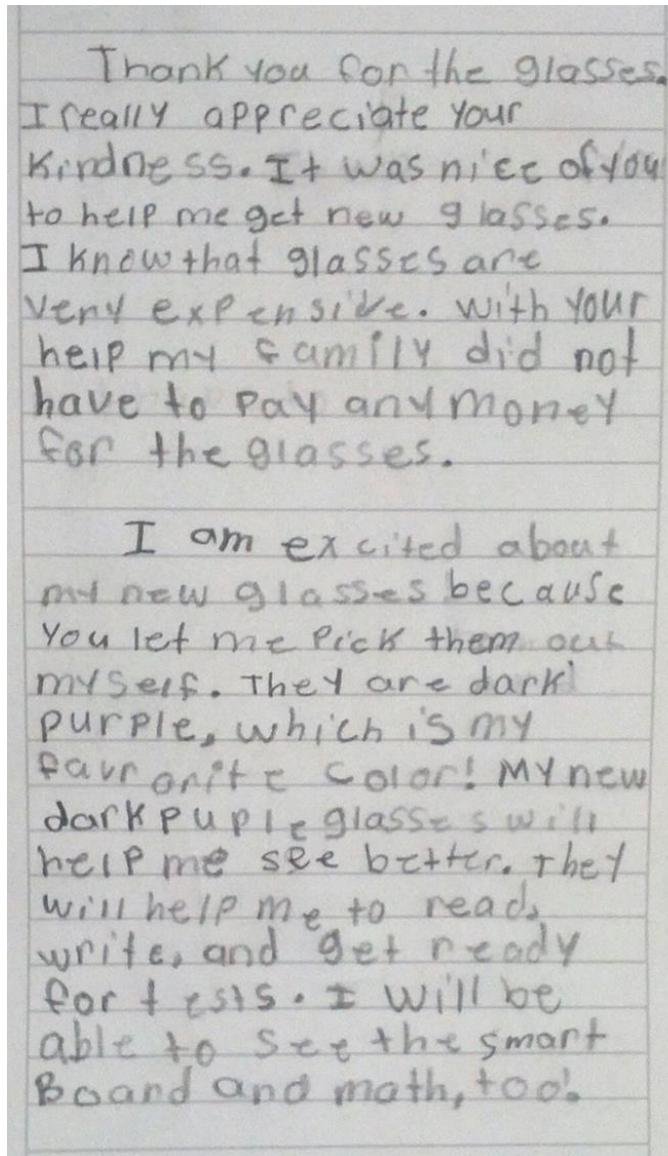 Thank you for the glasses.
I really appreciate your
kindness. It was nice of you
to help me get new glasses.
I know that glasses are
very expensive. With your
help my family did not
have to pay any money
for the glasses.
I am excited about
my new glasses because
you let me pick them out
myself. They are dark
purple, which is my
favronite color! My new
dark puple glasses will
help me see better. They
will help me to read,
write, and get ready
for tests. I will be
able to see the smart
Board and math, too!